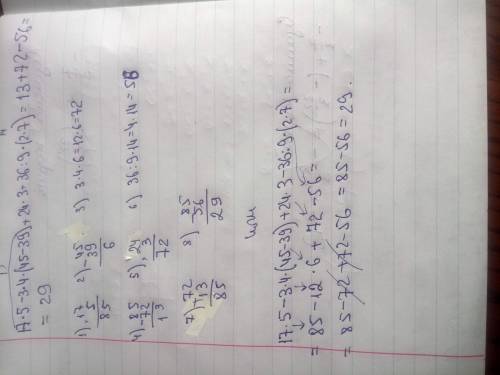 17·5-3·4·(45-39)+24·3-36:9·(2·7)=13+72-56=
= 29
1) ×17 5 85 2) -45 39 6 3) 3·4·6=12·6=72
4) -85 72 13 5) ×24 3 72 6) 36:9·14=4·14=56
7) +72 13 85 8) -85 56 29
или
17·5-3·4·(45-39)+24·3-36:9·(2·7)=
= 85-12·6+72-56=
= 85-72+72-56=85-56=29.